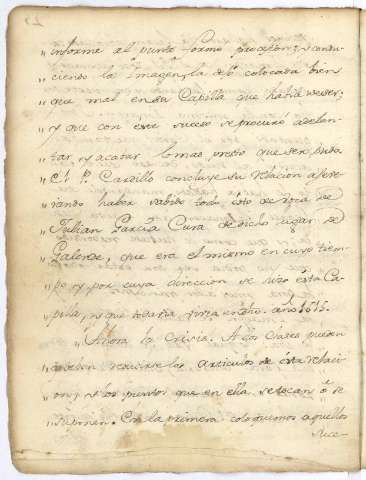 „ informe al punto formò procession; y condu-
„ ciendo la Imagen, la dejò colocada bien
„ que mal en su Capilla que havia
„ y que con este suceso se procurò adelan-
tar, y acavar lo mas presto que ser pudo.
„ El P. Cardillo concluye su relacion aseve-
„ rando haber sabido todo esto de voca de
„ Julian Garcia Cura de dicho Lugar de
„ Galende, que era el mismo en cuyo tiem-
„ po y por cuya direccion se hizo esta Ca-
„ pilla, y que todavia vivia en dho. año 1615.
„ Ahora la Crisis. A dos Clases pueden
reducirse los articulos de esta relaci-
„ on, y los puntos que en ella se tocan ò se
„ suponen. En la primera coloquemos aquellos
suce-